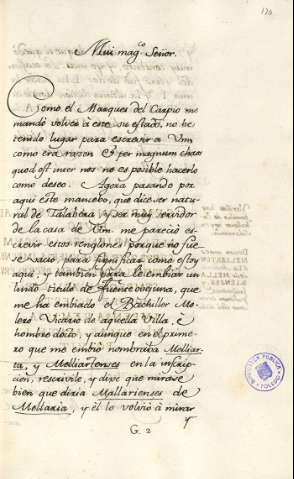 174
Mui mag.co Señor.
Como el Marques del Carpio me
mandó volver à este su estado, no he
tenido lugar para escrevir a Vm
como era razon & per magnum chaos
quod est inter nos no es posible hacerlo
como deseo. Agora pasando por
aqui este mancebo, que dice ser natu-
ral de Talabera, y ser mui servidor
de la casa de Vm. me pareció es-
crevir estos renglones porque no fue-
se vacio, para significar como estoy
aqui, y tambien para le embiar un
lindo titulo de Fuente obejuna, que
me ha embiado el Bachiller Mo-
lero Vicario de aquella Villa, è
hombre docto, y aunque en el prime-
ro que me embió nombraba Melliar-
ia, y Melliarienses en la inscrip-
cion, rescrivile, y dixe que mirase
bien que diria Mellarienses de
Mellaria, y èl lo volvió à mirar
y
G. 2
BIBLIOTECA PUBLICA
TOLEDO